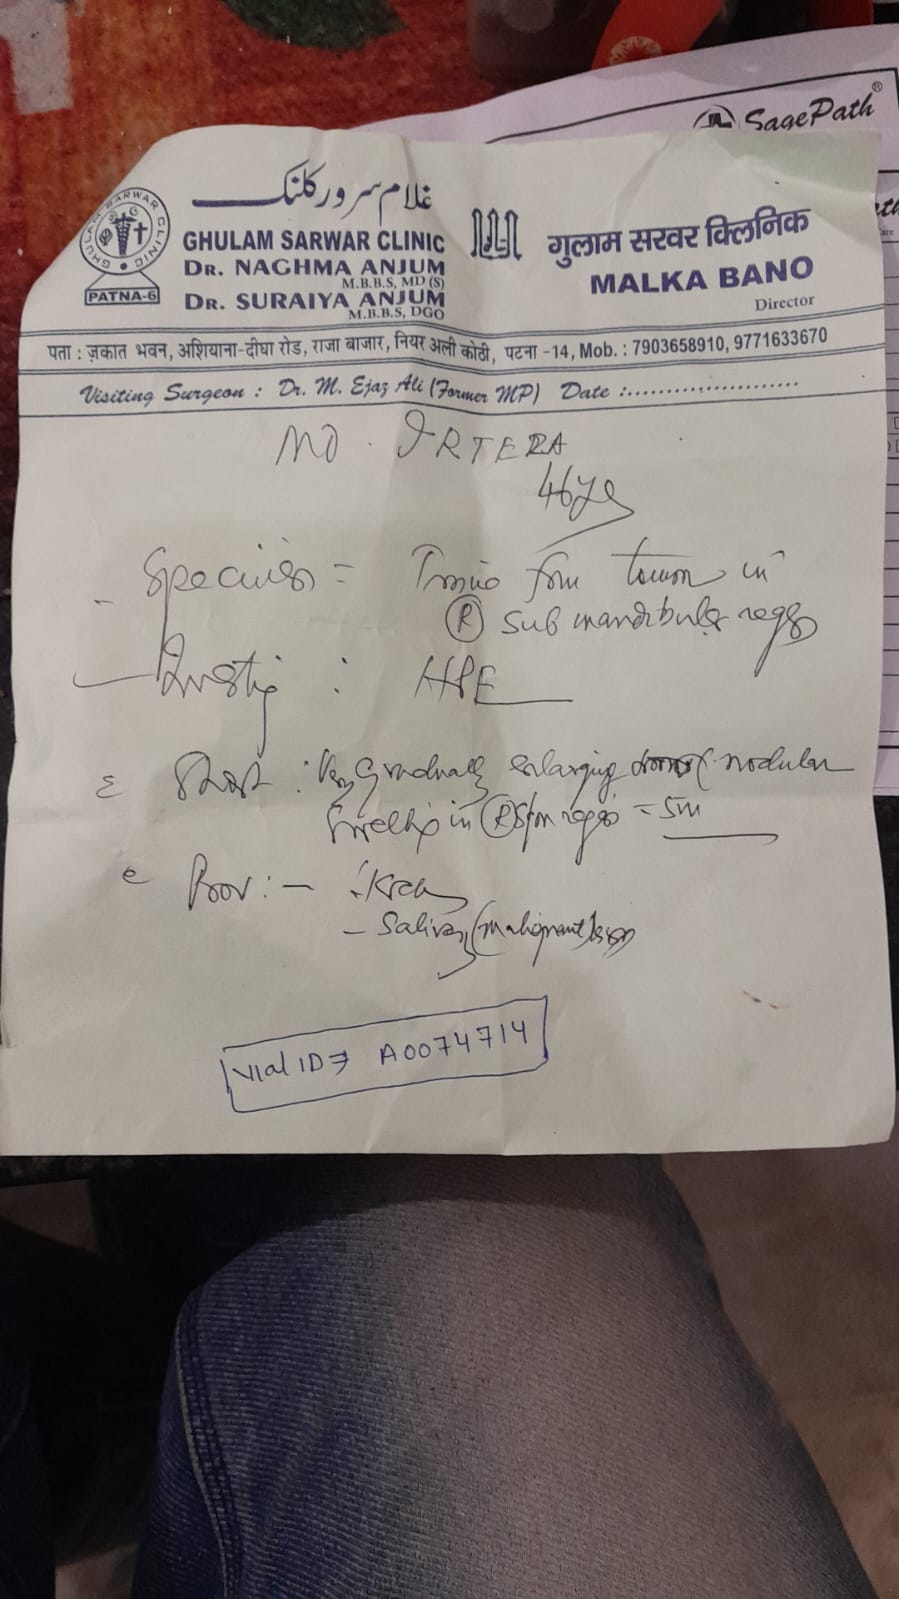 SagePath®
غلام سرور کلنک
GHULAM SARWAR CLINIC
PATNA-6
GHULAM SARWAR CLINIC
DR. NAGHMA ANJUM
M.B.B.S, MD (S)
DR. SURAIYA ANJUM
M.B.B.S, DGO
गुलाम सरवर क्लिनिक
MALKA BANO
Director
पता : ज़कात भवन, अशियाना-दीघा रोड, राजा बाजार, नियर अली कोठी, पटना -14, Mob. : 7903658910, 9771633670
Visiting Surgeon : Dr. M. Ejaz Ali (Former MP) Date :......................
MD. IRTEZA
46 yrs
Tissue from tumor in
(R) Sub mandibular region
: HPE
gradually enlarging nodular
swelling in (R) region = 5m
Prov: -
- Salivary (malignant)
Vial ID A0074714